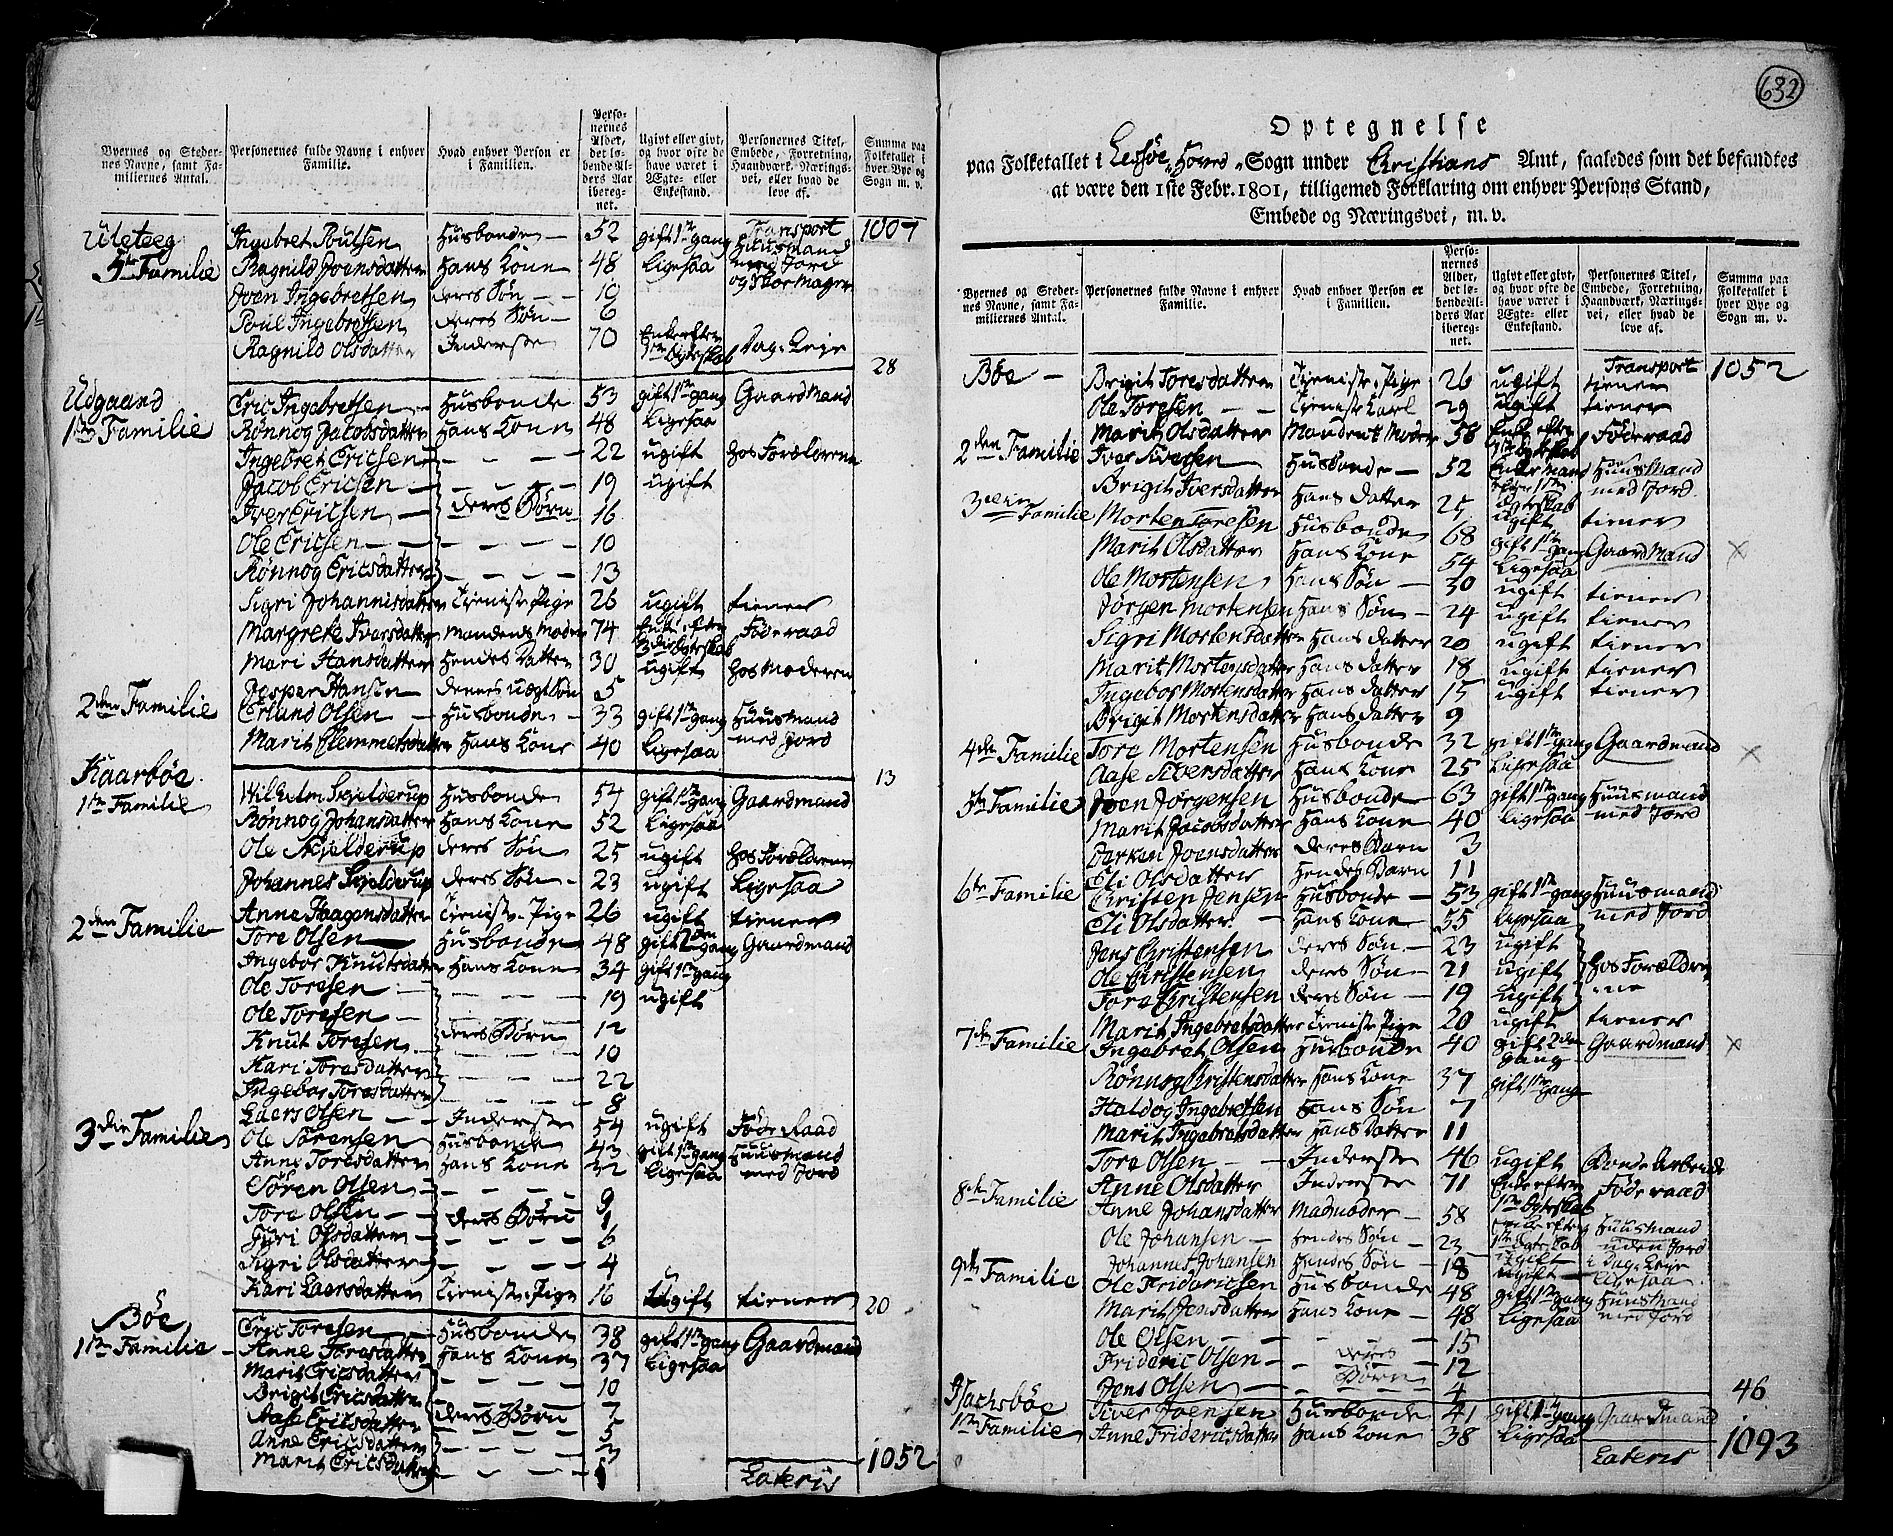 632
Byernes og Stedernes Navne, samt Familiernes Antal.
Personernes fulde Navne i enhver Familie.
Hvad enhver Person er i Familien.
Personernes Alder, det løbende Alders Aar iberegnet.
Ugivt eller givt, og hvor ofte de have været i Ægte- eller Enkestand.
Personernes Titel, Embede, Forretning, Haandværk, Næringsvei, eller hvad de leve af.
Summa paa Folketallet i hver Bye og Sogn m. v.
Transport 1007
Uleteeg Ingebret Poulsen Husbonde 52 gift 1ste gang Huusmand
5te Familie Ragnild Joensdatter Hans Kone 48 Ligesaa med Jord
Joen Ingebretsen deres Søn 10
Poul Ingebretsen deres Søn 6
Ragnild Olsdatter Inderste 70 Enke efter 1ste Egteskab Dag-Leje
28
Udgaard Eric Ingebretsen Husbonde 53 gift 1ste gang Gaardmand
1ste Familie Rønnog Jacobsdatter Hans Kone 48 Ligesaa
Ingebret Ericsen 22 ugift hos Forældrene
Jacob Ericsen 19 ugift
Iver Ericsen deres Børn 16
Ole Ericsen 10
Rønnog Ericsdatter 13
Sigri Johannisdatter Tieniste Pige 26 ugift tiener
Margrete Iversdatter Mandens Moder 74 Enke efter 3die Egteskab Føderaad
Mari Hansdatter Hendes Datter 30 ugift hos Moderen
Jesper Hansen dennes uægt Søn 5
2den Familie Erland Olsen Husbonde 33 gift 1ste gang Huusmand
Marit Clemmetsdatter Hans Kone 40 Ligesaa med Jord
13
Kaarbøe
1ste Familie Wilhelm Skjelderup Husbonde 54 gift 1ste gang Gaardmand
Rønnog Johansdatter Hans Kone 52 Ligesaa
Ole Skjelderup deres Søn 25 ugift hos Forældrene
Johannes Skjelderup deres Søn 23 ugift Ligesaa
Anne Haagensdatter Tieniste Pige 26 ugift tiener
2den Familie Tore Olsen Husbonde 48 gift 2den gang Gaardmand
Ingebor Knutsdatter Hans Kone 34 gift 1ste gang
Ole Toresen 19 ugift
Ole Toresen 12
Knut Toresen deres Børn 10
Kari Toresdatter 22
Ingebor Toresdatter 8
Laers Olsen Inderste 54 ugift Føde Raad
3die Familie Ole Sørensen Husbonde 43 gift 1ste gang Huusmand
Anne Toresdatter Hans Kone 32 Ligesaa med Jord
Søren Olsen 9
Tore Olsen deres Børn 1
Juri Olsdatter 6
Sigri Olsdatter 4
Kari Laersdatter Tieniste Pige 16 ugift tiener
20
Bøe
1ste Familie Eric Toresen Husbonde 38 gift 1ste gang Gaardmand
Anne Toresdatter Hans Kone 37 Ligesaa
Marit Ericsdatter 10
Brigit Ericsdatter 7
Aase Ericsdatter deres Børn 5
Anne Ericsdatter 3
Marit Ericsdatter 1
Lateris 1052
Optegnelse
paa Folketallet i Lessøe Hoved Sogn under Christians Amt, saaledes som det befandtes
at være den 1ste Febr. 1801, tilligemed Forklaring om enhver Persons Stand,
Embede og Næringsvei, m. v.
Byernes og Stedernes Navne, samt Familiernes Antal.
Personernes fulde Navne i enhver Familie.
Hvad enhver Person er i Familien.
Personernes Alder, det løbende Alders Aar iberegnet.
Ugivt eller givt, og hvor ofte de have været i Ægte- eller Enkestand.
Personernes Titel, Embede, Forretning, Haandværk, Næringsvei, eller hvad de leve af.
Summa paa Folketallet i hver Bye og Sogn m. v.
Transport 1052
Bøe Brigit Toresdatter Tieniste Pige 26 ugift tiener
Ole Toresen Tieniste Karl 29 ugift tiener
Marit Olsdatter Mandens Moder 58 Enke efter 1ste Egteskab Føderaad
2den Familie Iver Siversen Husbonde 52 Enke Mand efter 1ste Egteskab Huusmand med Jord
Brigit Iversdatter Hans Datter 25 ugift tiener
3die Familie Morten Toresen Husbonde 68 gift 1ste gang Gaardmand
Marit Olsdatter Hans Kone 54 Ligesaa
Ole Mortensen Hans Søn 30 ugift tiener
Jørgen Mortensen Hans Søn 24 ugift tiener
Sigri Mortensdatter Hans Datter 20 ugift tiener
Marit Mortensdatter Hans Datter 18 ugift tiener
Ingebor Mortensdatter Hans Datter 15 ugift tiener
Brigit Mortensdatter Hans Datter 9
4de Familie Tore Mortensen Husbonde 32 gift 1ste gang Gaardmand
Aase Siversdatter Hans Kone 25 Ligesaa
5te Familie Joen Jørgensen Husbonde 63 gift 1ste gang Huusmand
Marit Jacobsdatter Hans Kone 40 Ligesaa med Jord
Joensdatter deres Barn 3
Eli Olsdatter Hendes Barn 11
6te Familie Christen Jensen Husbonde 53 gift 1ste gang Huusmand
Eli Olsdatter Hans Kone 55 Ligesaa med Jord
Jens Christensen deres Søn 23 ugift
Ole Christensen deres Søn 21 ugift hos Forældrene
Tore Christensen deres Søn 19 ugift
Marit Ingebretsdatter Tieniste Pige 20 ugift tiener
7de Familie Ingebret Olsen Husbonde 40 gift 2den gang Gaardmand
Rønnog Christensdatter Hans Kone 37 gift 1ste gang
Haldog Ingebretsen Hans Søn 7
Marit Ingebretsdatter Hans Datter 11
Tore Olsen Inderste 46 ugift Bonde Arbeide
Anne Olsdatter Inderste 71 Enke efter 1ste Egteskab Føderaad
8de Familie Anne Johansdatter Madmoder 58 Enke efter 1ste Egteskab Huusmand uden Jord
Ole Johansen Hendes Søn 23 ugift i Dag-Leje
Johannes Johansen Hendes Søn 18 ugift Ligesaa
9de Familie Ole Fridericsen Husbonde 48 gift 1ste gang Huusmand
Marit Jensdatter Hans Kone 48 Ligesaa med Jord
Ole Olsen 15
Frideric Olsen deres Børn 12
Jens Olsen 4
46
Hachsbøe Siver Joensen Husbonde 41 gift 1ste gang Gaardmand
1ste Familie Anne Fridericsdatter Hans Kone 38 Ligesaa
Lateris 1093